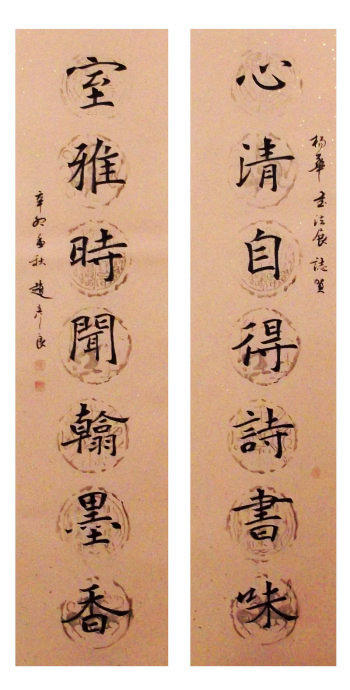 楊華書法展誌賀
心清自得詩書味
室雅時聞翰墨香
辛卯年秋趙彥良